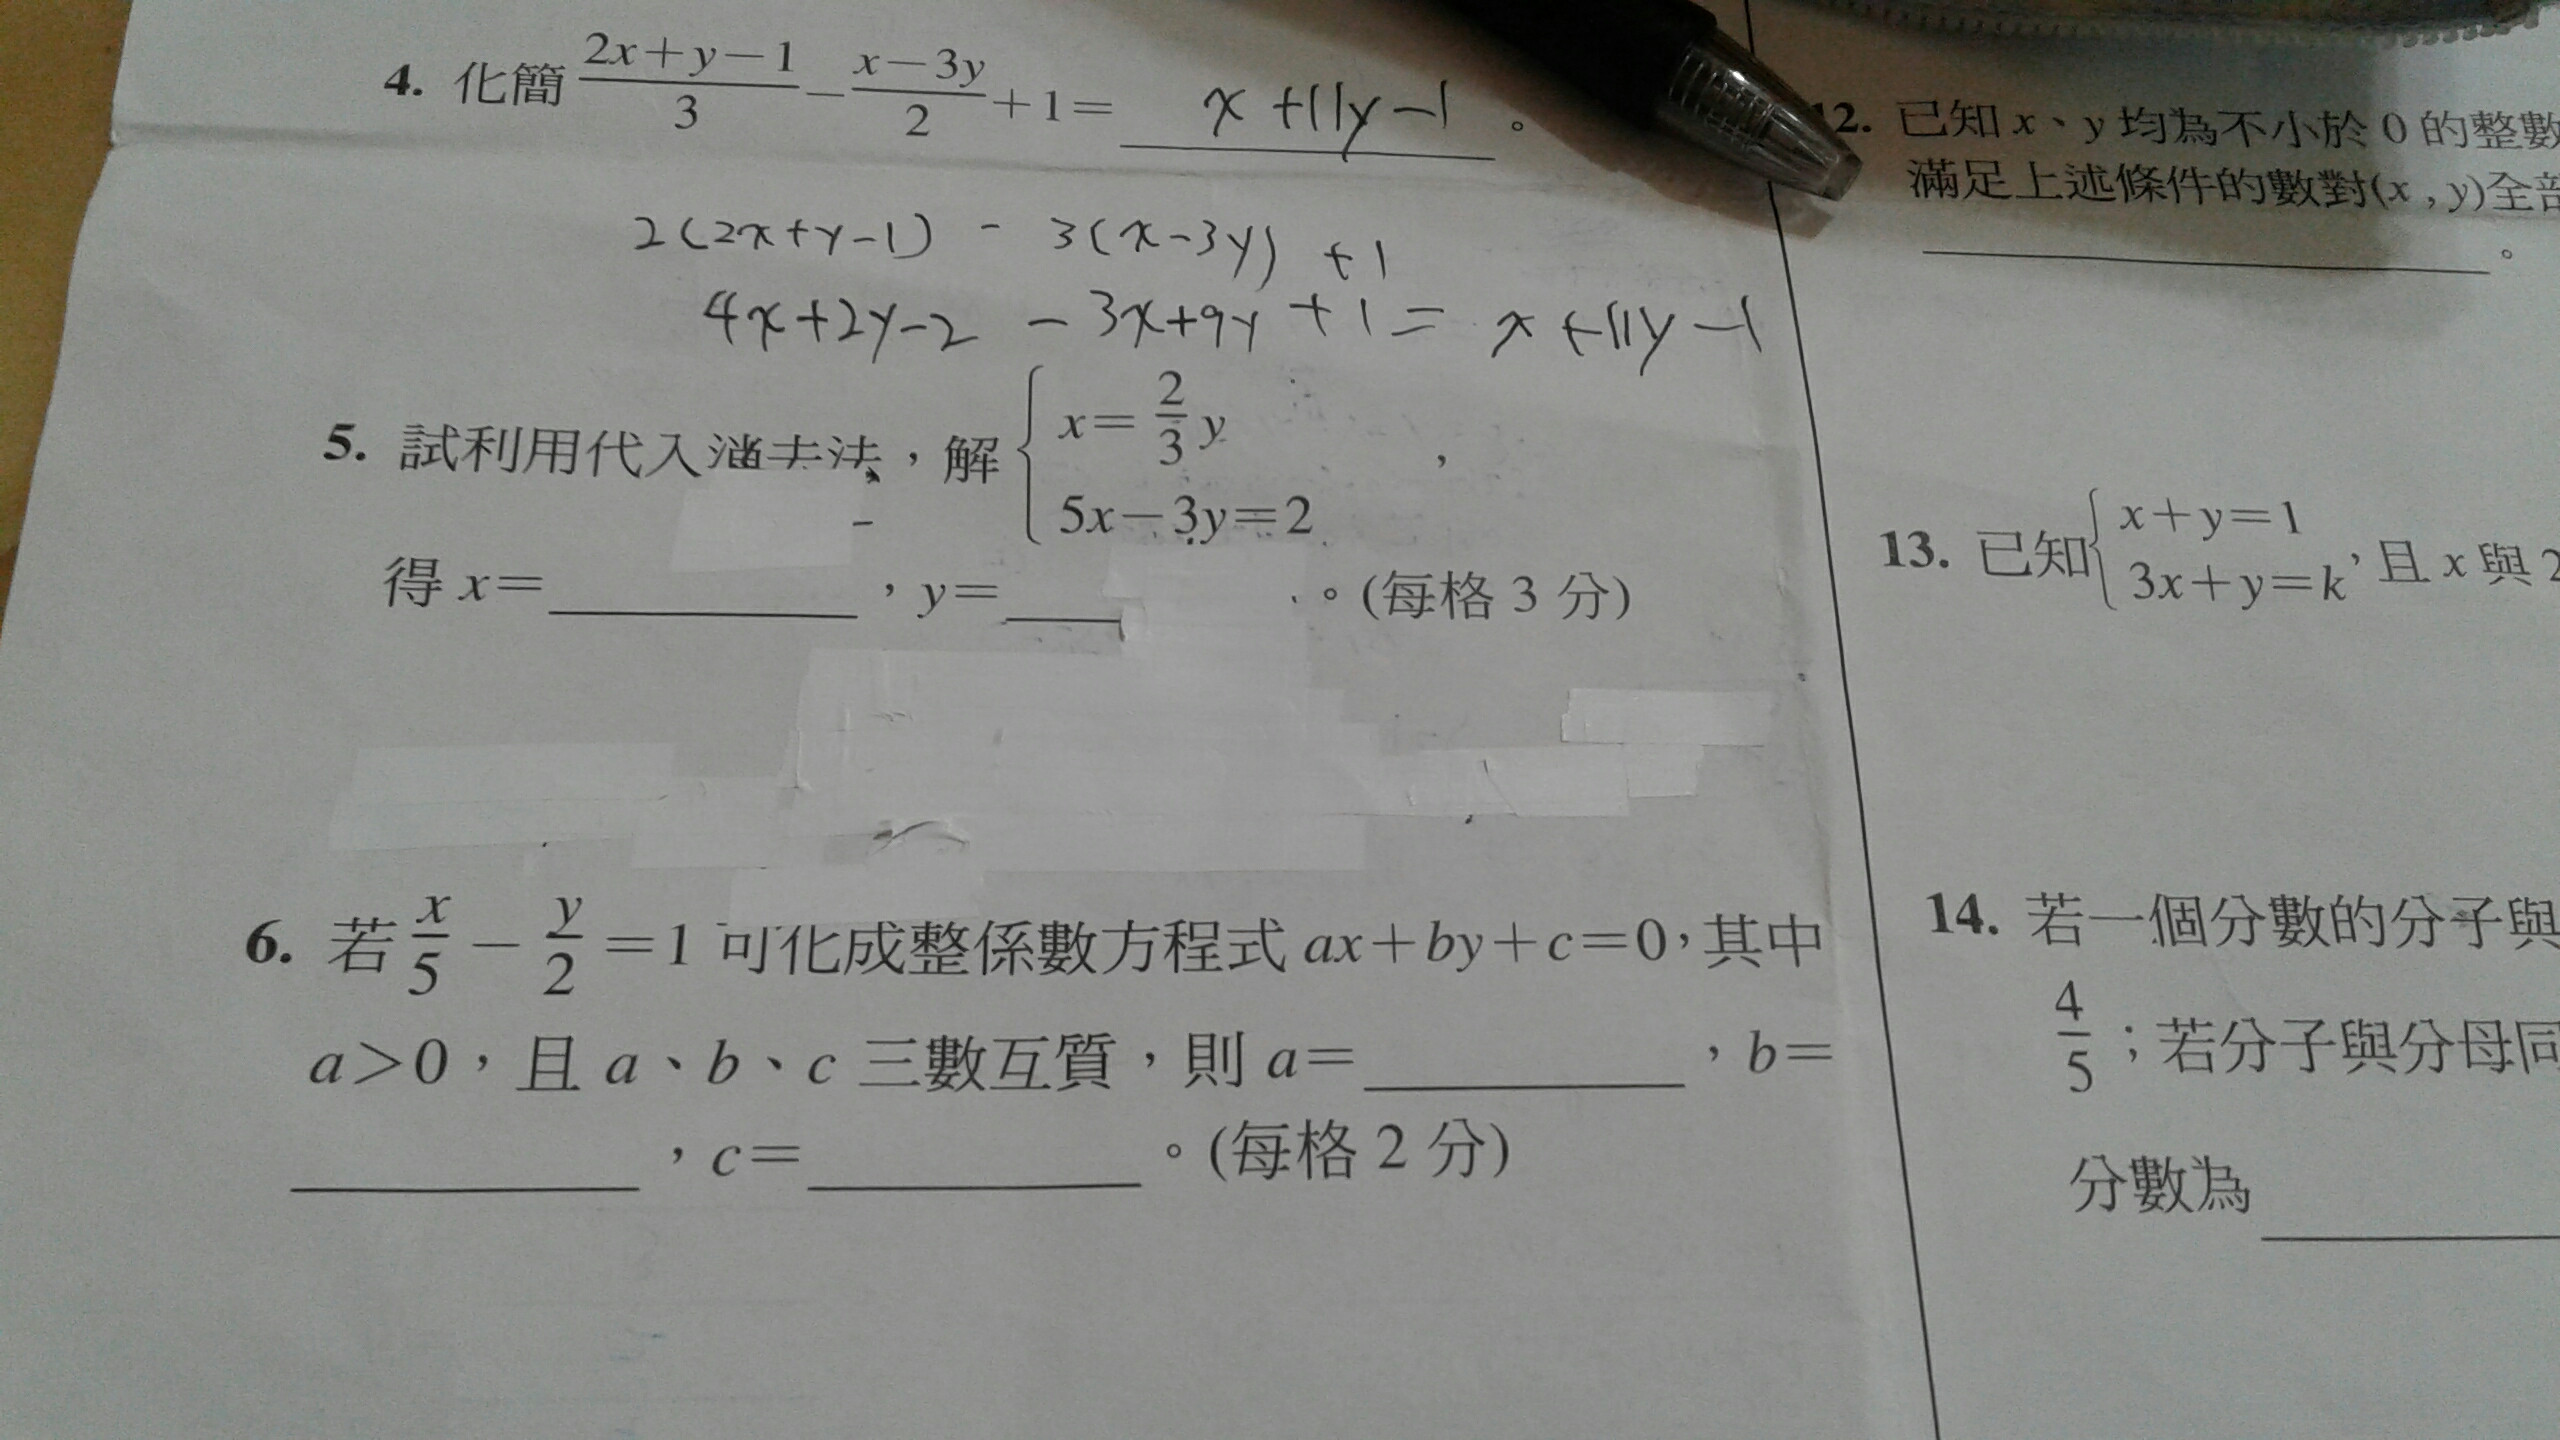 4. 化簡 (2x+y−1)/3 − (x−3y)/2 +1= x+11y−1 。
2(2x+y−1) − 3(x−3y) +1
4x+2y−2 −3x+9y+1= x+11y−1
5. 試利用代入消去法，解 { x= 2/3 y ，
5x−3y=2
得 x= ，y= 。(每格 3 分)
6. 若 x/5 − y/2 =1 可化成整係數方程式 ax+by+c=0，其中
a>0，且 a、b、c 三數互質，則 a= ，b=
，c= 。(每格 2 分)
12. 已知 x、y 均為不小於 0 的整數
滿足上述條件的數對(x , y)全部
。
13. 已知 { x+y=1
3x+y=k ，且 x 與 2
14. 若一個分數的分子與
4/5 ；若分子與分母同
分數為